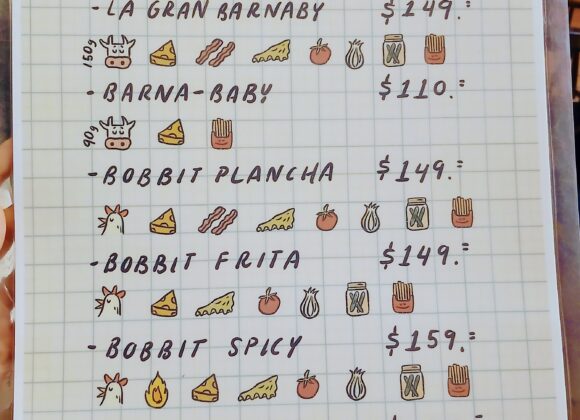 - LA GRAN BARNABY $149.=
150g
- BARNA-BABY $110.=
90g
- BOBBIT PLANCHA $149.=
- BOBBIT FRITA $149.=
- BOBBIT SPICY $159.=